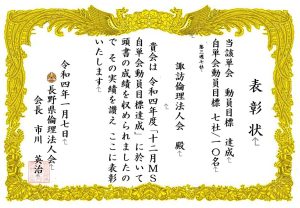 表彰状
当該単会 動員目標 達成
自単会動員目標 七社/一〇名
第三〇七号
諏訪倫理法人会 殿
貴会は 令和四年度「十二月MS
自単会動員目標達成」に於いて
頭書の成績を収められましたの
で その実績を讃え ここに表彰
いたします
令和四年一月七日
長野県倫理法人会
会長 市川 英治